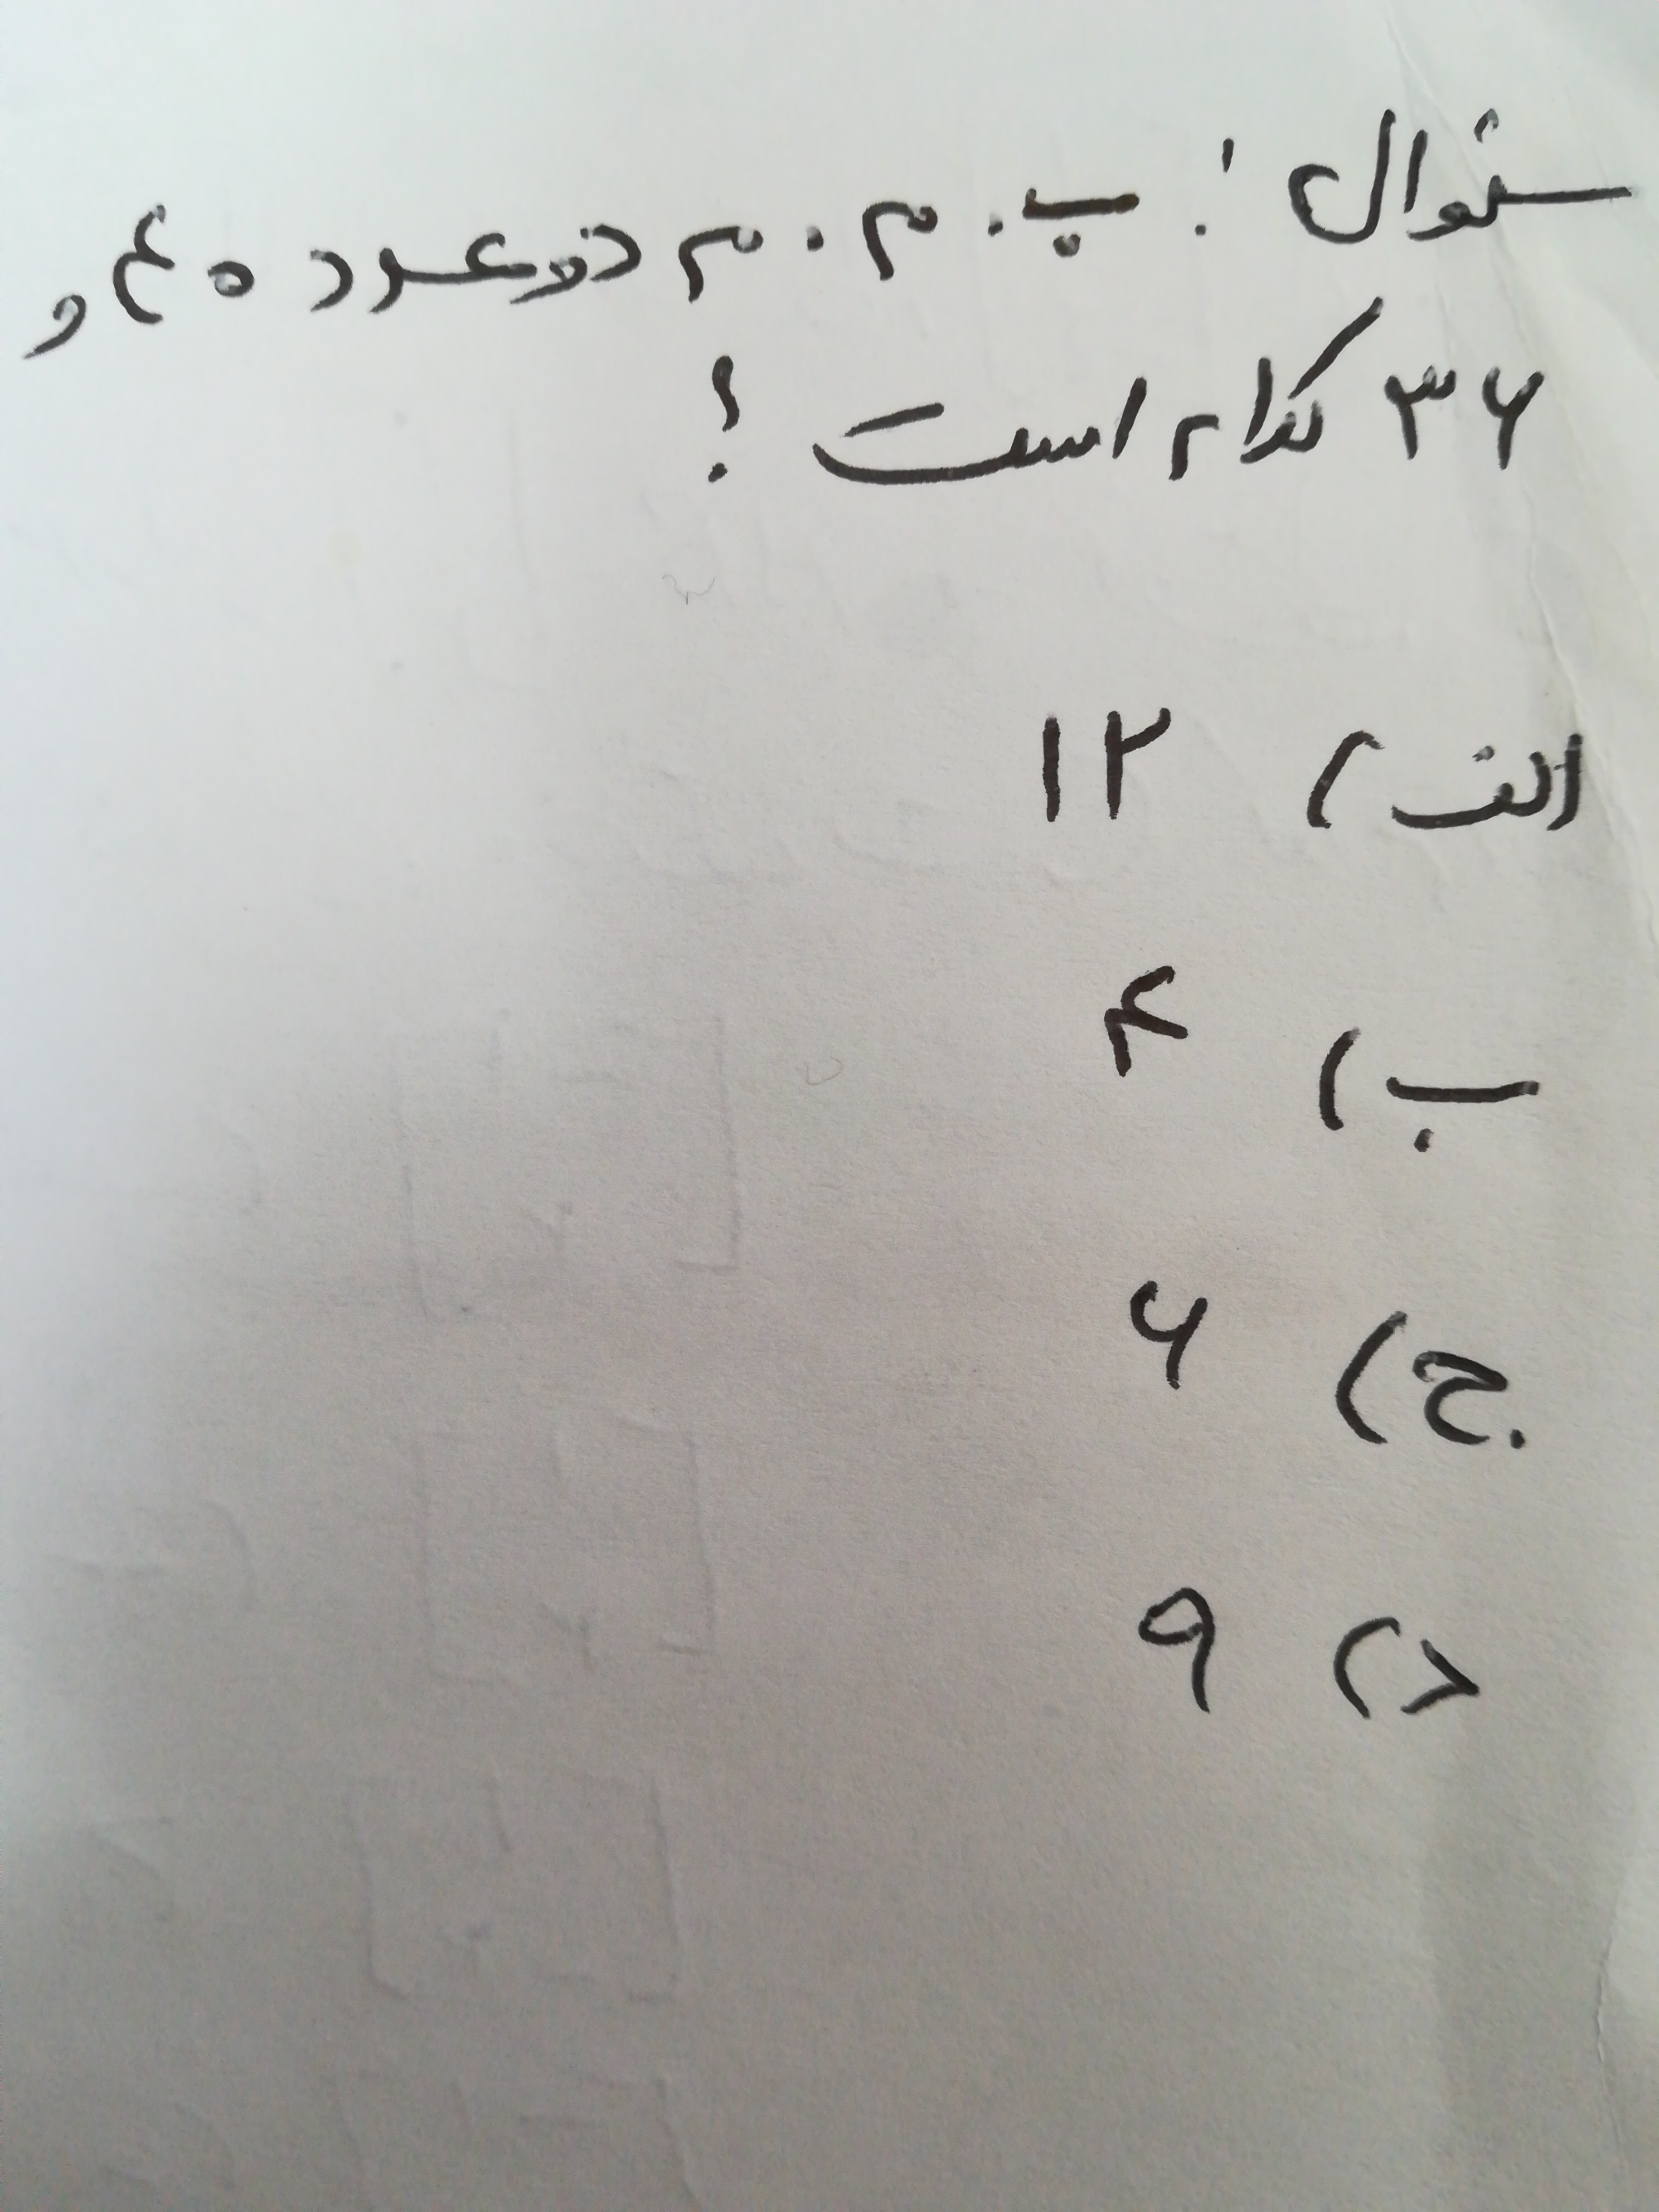 سئوال : ب . م . م دو عدد ۴۰ و
۳۶ کدام است ؟
الف ) ۱۲
ب ) ۴
ج ) ۶
د ) ۹